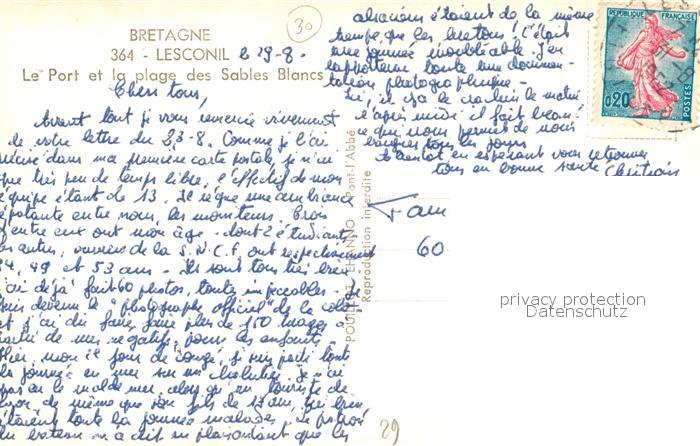 BRETAGNE
364 - LESCONIL 29-8.
Le Port et la plage des Sables Blancs
30
Chers tous,
Avant tout je vous remercie vivement
de votre lettre du 23-8. Comme je l'ai
dans ma première carte postale, je n'ai
que très peu de temps libre, l'effectif de mon
équipe étant de 13. Il règne une ambiance
épatante entre nous, les moniteurs. Trois
d'entre eux ont mon âge - dont 2 étudiants
les autres, ouvriers de la S.N.C.F, ont respectivement
49 et 53 ans - Ils sont tous très
j'ai déjà fait 60 photos, toutes impeccables - Je
suis devenu le "photographe officiel" de la colo
et j'ai dû faire plus de 150 images à
partir de mes négatifs, pour les enfants
Hier, mon jour de congé, je suis parti toute
la journée en mer sur un chalutier, je n'ai
pas eu le mal de mer, alors qu'un touriste de
de même que son fils de 17 ans,
étaient toute la journée malades - Le patron
du bateau m'a dit en plaisantant que les
alsaciens étaient de la même
trempe que les bretons! C'était
une journée inoubliable. J'en
rapporterai toute une documen-
tation photographique -
Ici, il y a le crachin le matin
l'après midi il fait beau
ce qui nous permet de nous
baigner tous les jours
A bientôt en espérant vous retrouver
tous en bonne santé
POSTES
RÉPUBLIQUE FRANÇAISE
0,20
Pont-l'Abbé
Reproduction interdite
Fam
60
29
privacy protection
Datenschutz